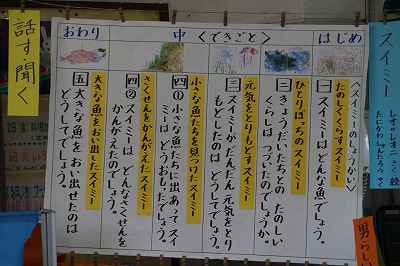 スイミー
レオ=レオニ さく 絵
たにかわしゅんたろう やく
はじめ
〈できごと〉
中
おわり
〈スイミーのしょうかい〉
たのしくくらすスイミー
㈠スイミーはどんな魚でしょう。
ひとりぼっちのスイミー
㈡きょうだいたちとの たのしい
くらしは つづいたのでしょうか。
元気をとりもどすスイミー
㈢スイミーがだんだん 元気をとり
もどしたのは どうしてでしょう。
小さな魚たちを見つけたスイミー
四①小さな魚たちに出あって スイ
ミーは どうおもったでしょう。
さくせんをかんがえたスイミー
四②スイミーは どんなさくせんを
かんがえたでしょう。
大きな魚をおい出したスイミー
五 大きな魚を おい出せたのは
どうしてでしょう。
話す・聞く